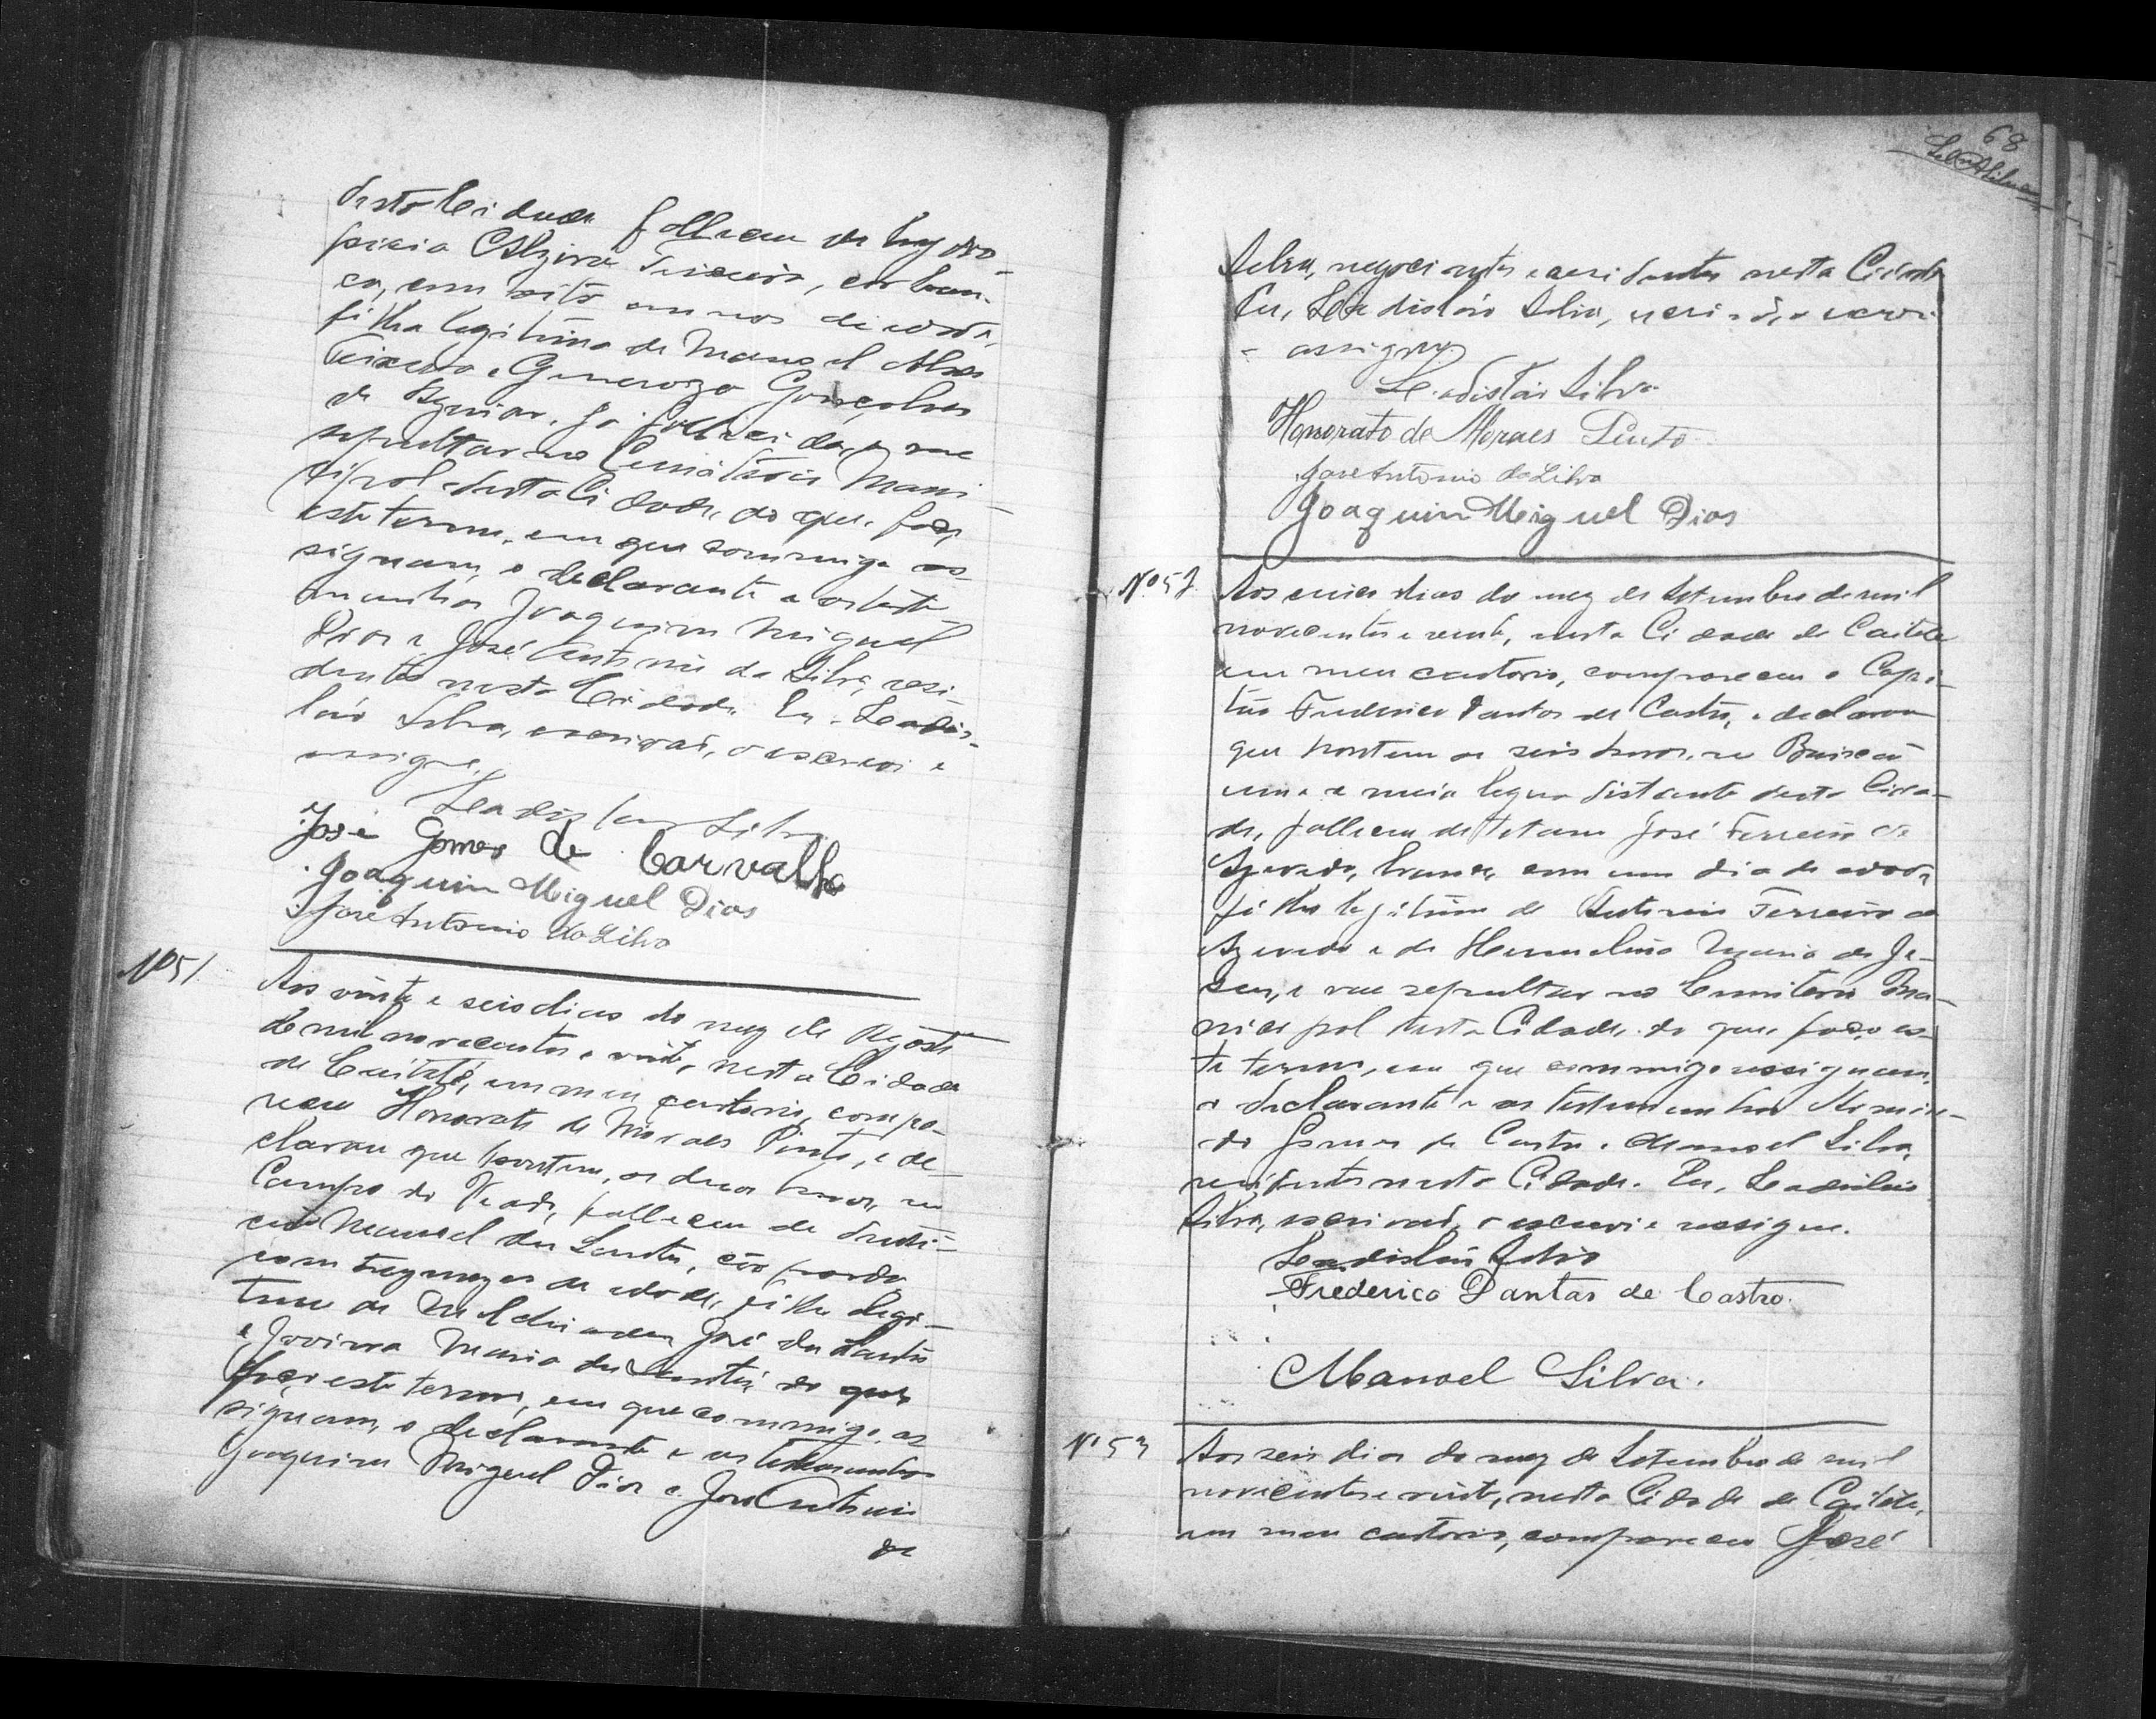 desta Cidade falleceu de hydro-
pisia Alzira Teixeira, cor bran-
ca, com oito annos de idade,
filha legitima de Manoel Alves
Teixeira e Generoza Gonçalves
de Aguiar, já fallecida, e vae
sepultar no Cemiterio Muni-
cipal desta Cidade, do que faço
este termo, em que commigo as-
signam, o declarante e as teste-
munhas Joaquim Miguel
Dias e José Antonio da Silva, resi-
dentes nesta Cidade. Eu, Leadis-
láo Silva, escrivão, o escrevi e
assigno.
Leadisláo Silva
José Gomes de Carvalho
Joaquim Miguel Dias
José Antonio da Silva
Nº 51
Aos vinte e seis dias do mez de Agosto
de mil novecentos e vinte, nesta Cidade
de Caiteté, em meu cartorio, compa-
receu Honorato de Moraes Pinto, e de-
clarou que hontem, as horas, no
Campo do falleceu de denti-
ção Manoel dos Santos, côr parda,
com trez mezes de idade, filho legi-
timo de José dos Santos
e Jovina Maria dos Santos, do que
faço este termo, em que commigo as-
signam, o declarante e as testemunhas
Joaquim Miguel Dias e José Antonio
da
68
Silva, negociantes e residentes nesta Cidade
Eu, Leadisláo Silva, escrivão, o escrevi
e assigno
Leadisláo Silva
Honorato de Moraes Pinto
José Antonio da Silva
Joaquim Miguel Dias
Nº 52
Aos cinco dias do mez de Setembro de mil
novecentos e vinte, nesta Cidade de Caiteté
em meu cartorio, compareceu o Capi-
tão Frederico Dantas de Castro, e declarou
que hontem as seis horas, no
uma e meia legua distante desta Cida-
de, falleceu de tetano José Ferreira de
Azevedo, branco, com um dia de idade
filho legitimo de Antonio Ferreira de
Azevedo e de Hermelina Maria de Je-
sus, e vae sepultar no Cemiterio Mu-
nicipal desta Cidade, do que faço es-
te termo, em que commigo assignam,
o declarante e as testemunhas
Gomes de Castro e Manoel Silva,
residentes nesta Cidade. Eu, Leadisláo
Silva, escrivão, o escrevi e assigno.
Leadisláo Silva
Frederico Dantas de Castro
Manoel Silva.
Nº 53
Aos seis dias do mez de Setembro de mil
novecentos e vinte, nesta Cidade de Caiteté,
em meu cartorio, compareceu José